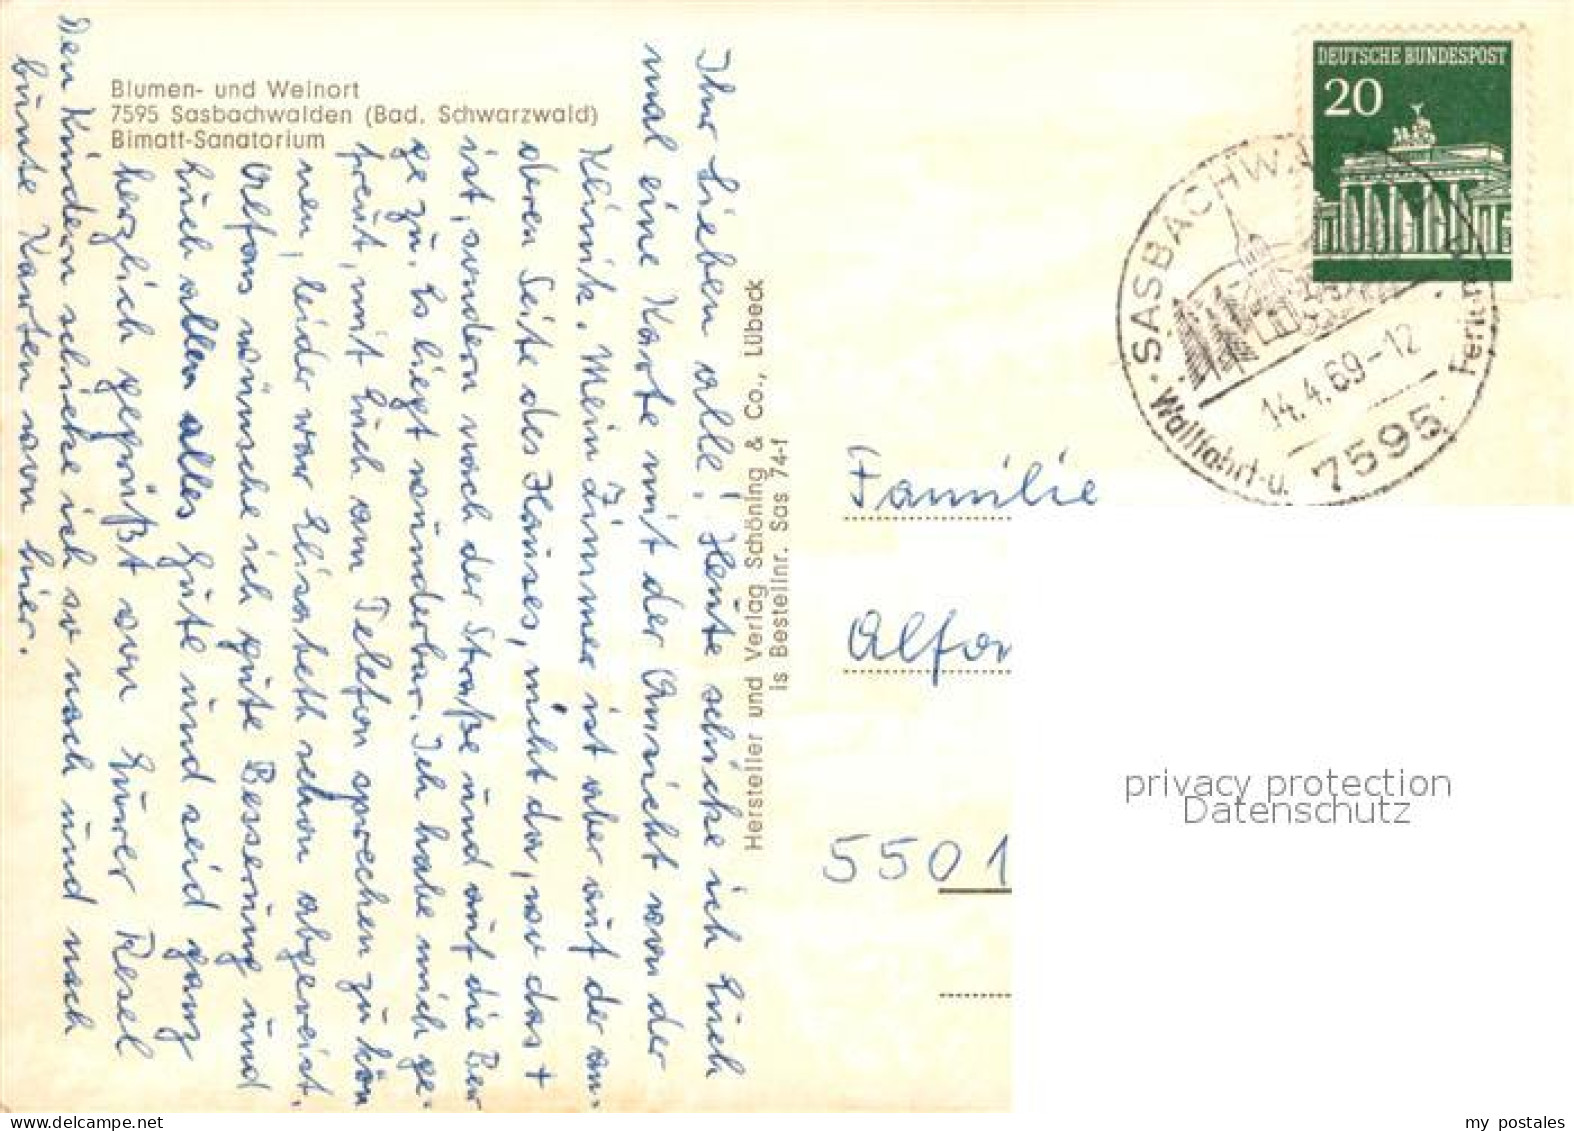 Blumen- und Weinort
7595 Sasbachwalden (Bad. Schwarzwald)
Bimatt-Sanatorium
Ihr Lieben alle! Heute schicke ich Euch
mal eine Karte mit der Ansicht von der
Klinik. Mein Zimmer ist aber auf der an-
deren Seite des Hauses, nicht da, wo das +
ist, sondern nach der Straße und auf die Ber
ge zu. Es liegt wunderbar. Ich habe mich ge-
freut, mit Euch am Telefon sprechen zu kön
nen, leider war Elisabeth schon abgereist.
Alfons wünsche ich gute Besserung und
Euch allen alles Gute und seid ganz
herzlich gegrüßt von Eurer Resel
Den Kindern schicke ich so nach und nach
bunte Karten von hier.
Hersteller und Verlag Schöning & Co., Lübeck
is Bestellnr. Sas 74-f
DEUTSCHE BUNDESPOST
20
SASBACHWA
14.4.69-12
7595
Wallfahrt-u.
Familie
Alfon
5501
privacy protection
Datenschutz
my postales